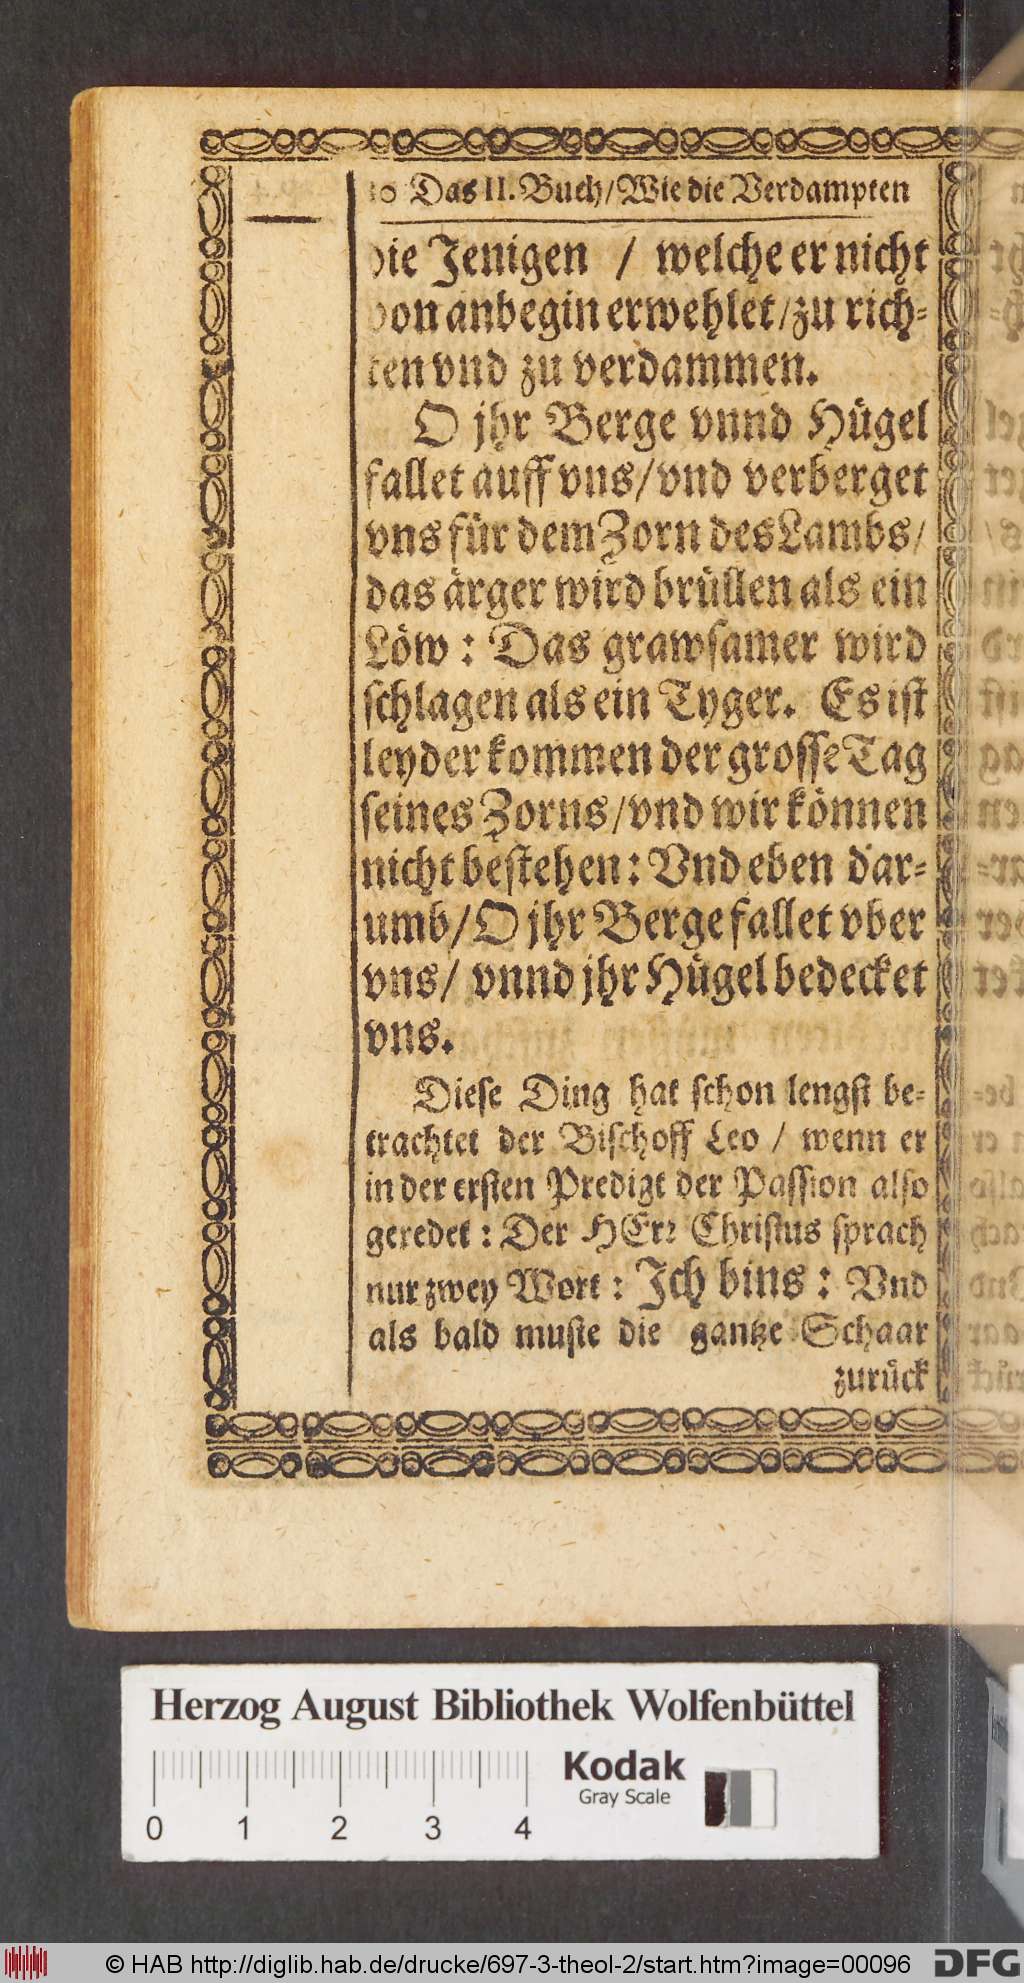 80 Das II. Buch/Wie die Verdampten
die Jenigen / welche er nicht
von anbegin erwehlet/zu rich-
ten vnd zu verdammen.
O jhr Berge vnnd Hügel
fallet auff vns/vnd verberget
vns für dem Zorn des Lambs/
das ärger wird brüllen als ein
Löw : Das grawsamer wird
schlagen als ein Tyger. Es ist
leyder kommen der grosse Tag
seines Zorns/vnd wir können
nicht bestehen: Vnd eben dar-
umb/O jhr Berge fallet vber
vns/ vnnd jhr Hügel bedecket
vns.
Diese Ding hat schon lengst be-
trachtet der Bischoff Leo / wenn er
in der ersten Predigt der Passion also
geredet : Der HErr Christus sprach
nur zwey Wort : Jch bins : Vnd
als bald muste die gantze Schaar
zurück
Herzog August Bibliothek Wolfenbüttel
Kodak
Gray Scale
0 1 2 3 4
© HAB http://diglib.hab.de/drucke/697-3-theol-2/start.htm?image=00096
DFG